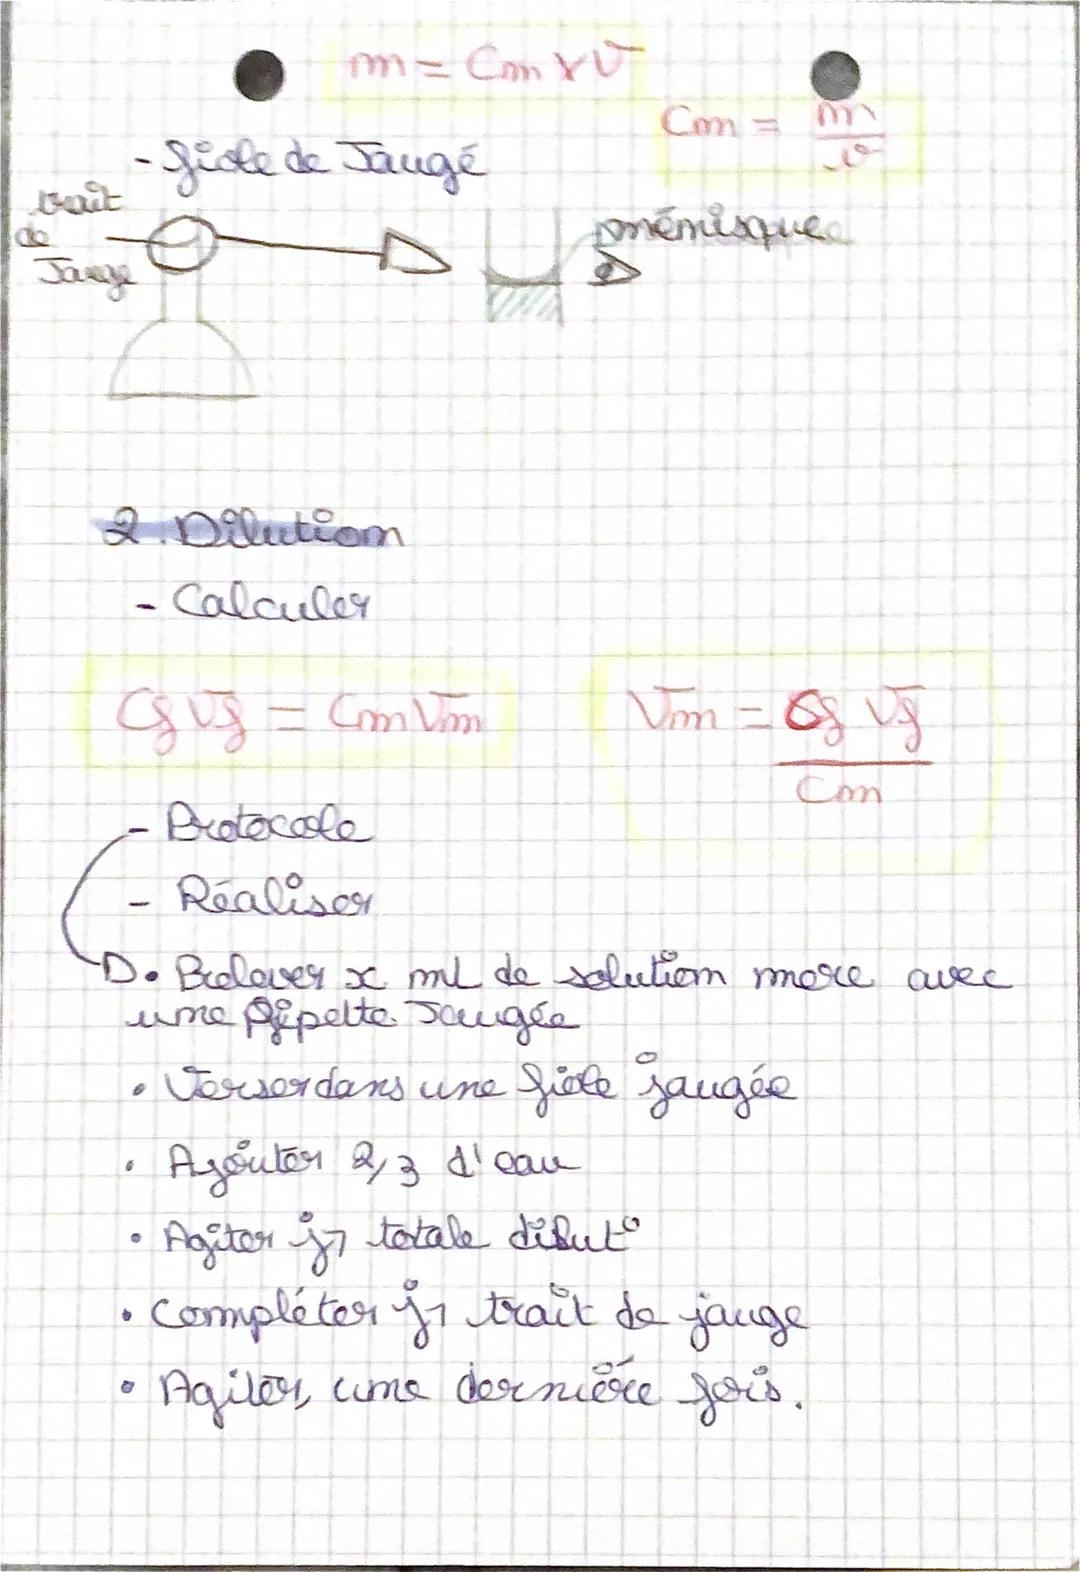 m = Cm x V
Cm = m/v
- fiole de Jaugé
trait
de
Jauge
ménisque
2. Dilution
- Calculer
Cf Vf = Cm Vm
Vm = Cf Vf
Cm
- Protocole
- Réaliser
• Prelever x ml de solution mere avec
une pipette Jaugée
• Verser dans une fiole jaugée
• Ajouter 2/3 d'eau
• Agiter jq totale dilut°
• Compléter jq trait de jauge
• Agiter, une dernière fois.